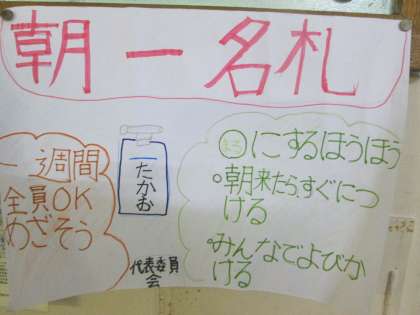 朝一名札
一週間
全員OK
めざそう
一たかお
代表委員
会
よるにするほうほう
•朝来たら、すぐにつ
ける
•みんなでよびか
ける